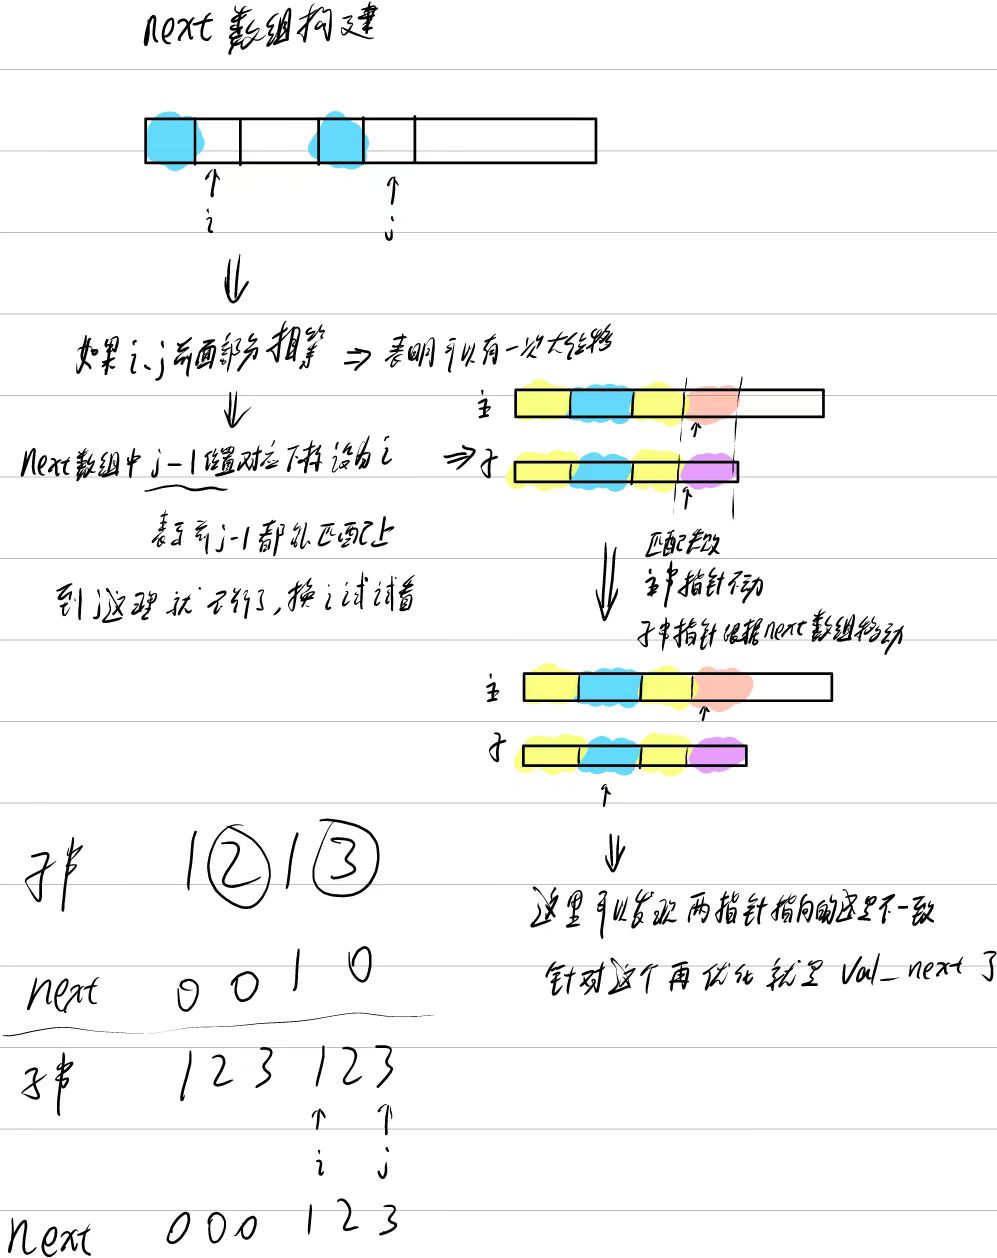 next 数组构建
i
j
如果 i、j 前面部分相等 ⇒ 表明可以有一次大位移
next数组中 j-1位置对应下标设为 i ⇒
表示前 j-1 都能匹配上
到 j 这里就不行了，换 i 试试看
主
子
匹配失败
主串指针不动
子串指针根据next数组移动
主
子
这里可以发现两指针指向的还是不一致
针对这个再优化就是 val_next 了
子串 1 2 1 3
next 0 0 1 0
子串 1 2 3 1 2 3
i
j
next 0 0 0 1 2 3